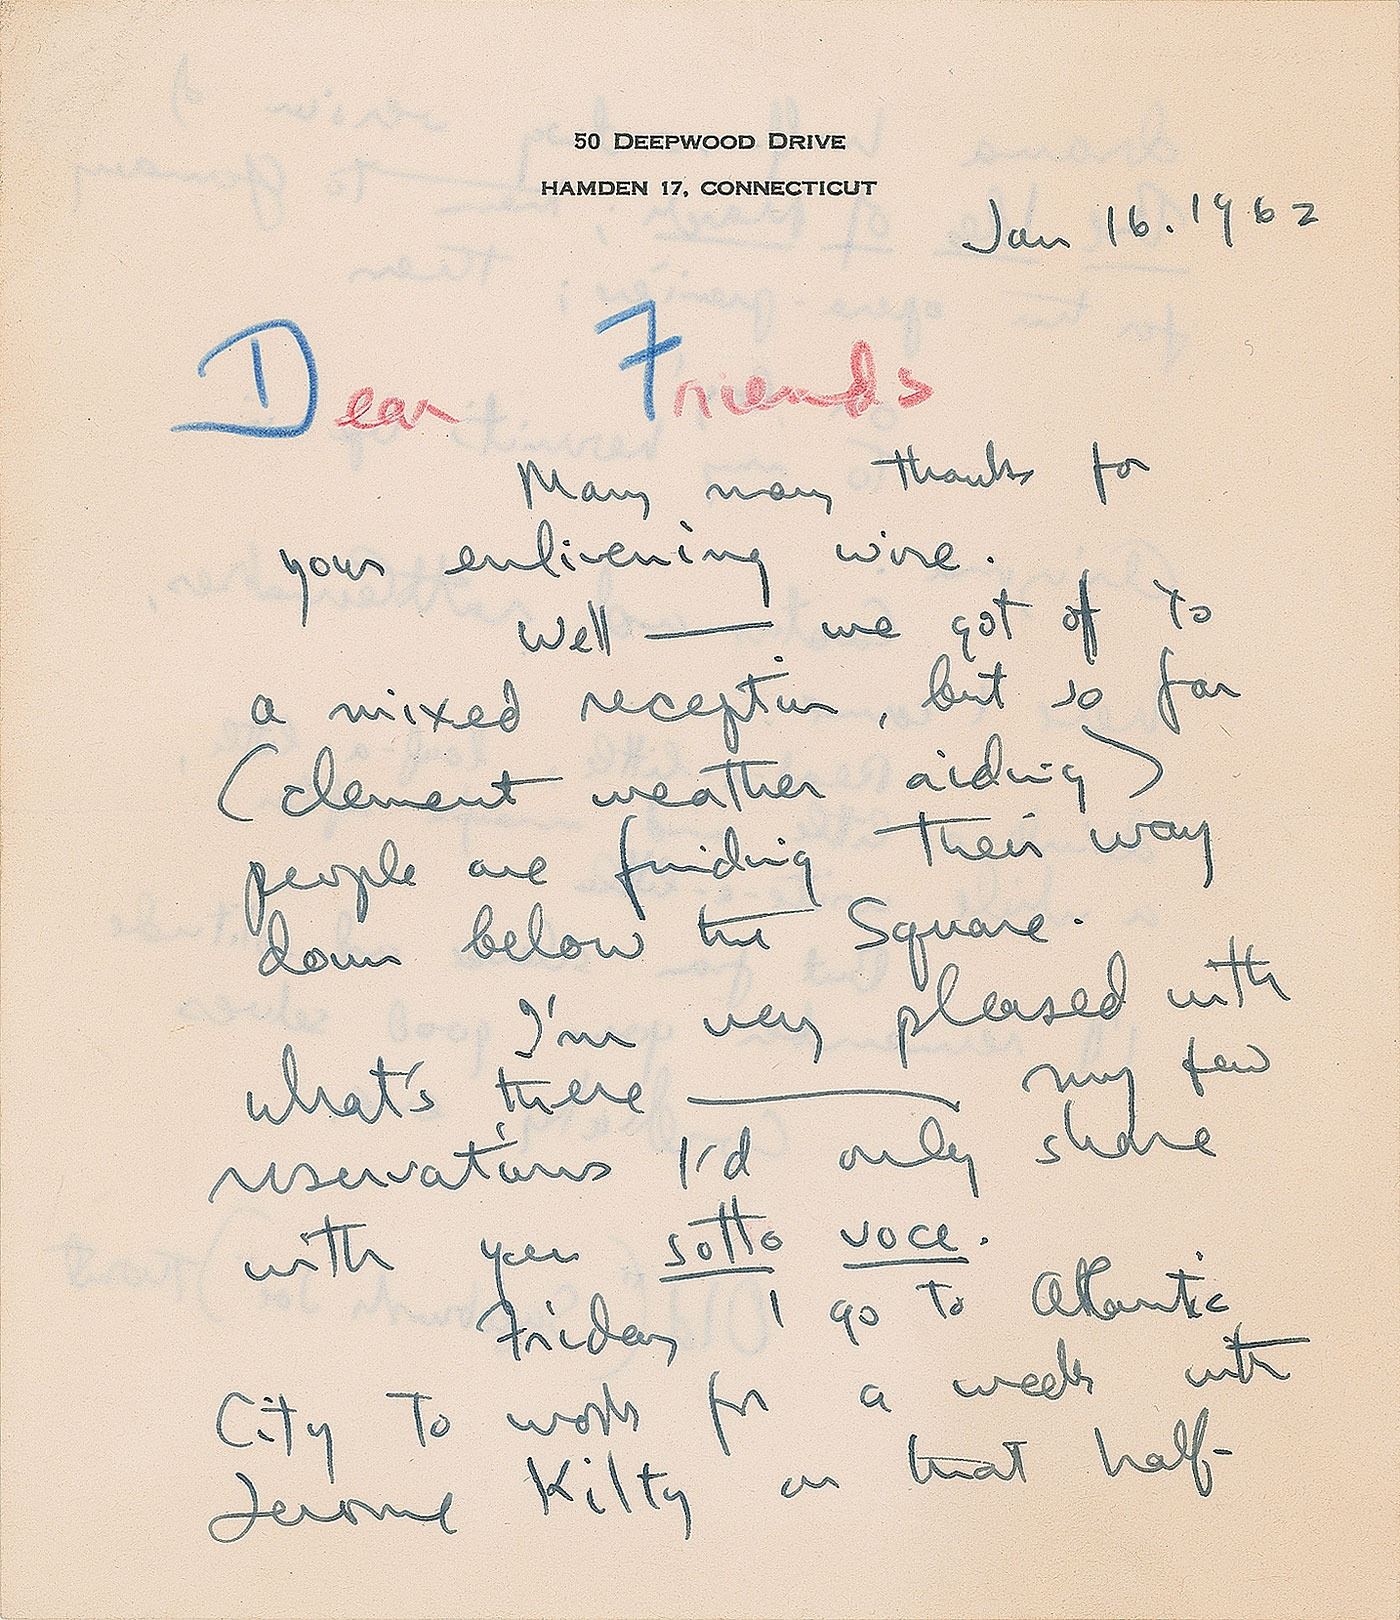 50 DEEPWOOD DRIVE
HAMDEN 17, CONNECTICUT
Jan 16. 1962
Dear Friends
Many many thanks for
your enlivening wire.
Well — we got off to
a mixed reception, but so far
(clement weather aiding)
people are finding their way
down below the Square.
I'm very pleased with
what's there — my few
reservations I'd only share
with you sotto voce.
Friday I go to Atlantic
City to work for a week with
Jerome Kilty on that half-